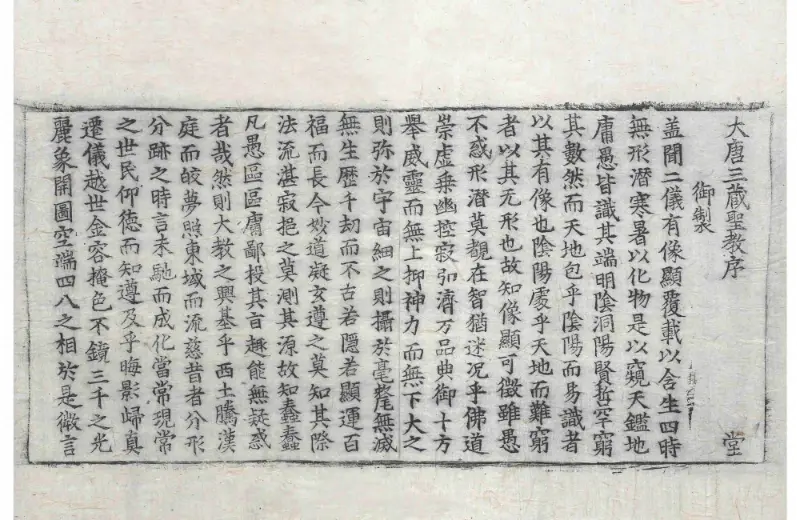 大唐三蔵聖教序
堂
御製
盖聞二儀有像顯覆載以含生四時
無形潜寒暑以化物是以窺天鑑地
庸愚皆識其端明陰洞陽賢哲罕窮
其數然而天地包乎陰陽而易識者
以其有像也陰陽處乎天地而難窮
者以其无形也故知像顯可徵雖愚
不惑形潜莫覩在智猶迷况乎佛道
崇虚乗幽控寂弘濟万品典御十方
舉威靈而無上抑神力而無下大之
則弥於宇宙細之則攝於毫氂無滅
無生歴千劫而不古若隠若顯運百
福而長今妙道凝玄遵之莫知其際
法流湛寂挹之莫測其源故知蠢蠢
凡愚區區庸鄙投其旨趣能無疑惑
者哉然則大教之興基乎西土騰漢
庭而皎夢照東域而流慈昔者分形
分跡之時言未馳而成化當常現常
之世民仰徳而知遵及乎晦影歸真
遷儀越世金容掩色不鏡三千之光
麗象開圖空端四八之相於是微言